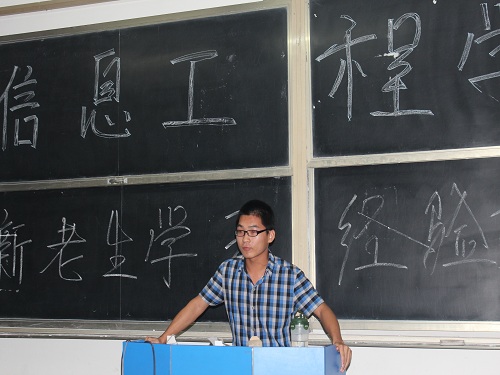 信息工程学
新老生学习经验